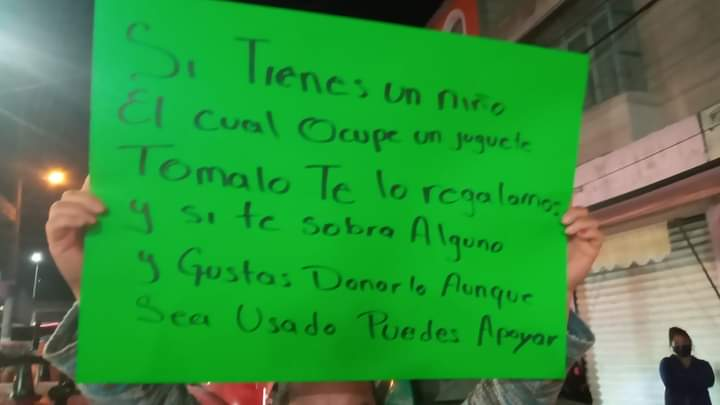 Si Tienes un niño
El cual Ocupe un juguete
Tomalo Te lo regalamos
y si te sobra Alguno
y Gustas Donarlo Aunque
Sea Usado Puedes Apoyar